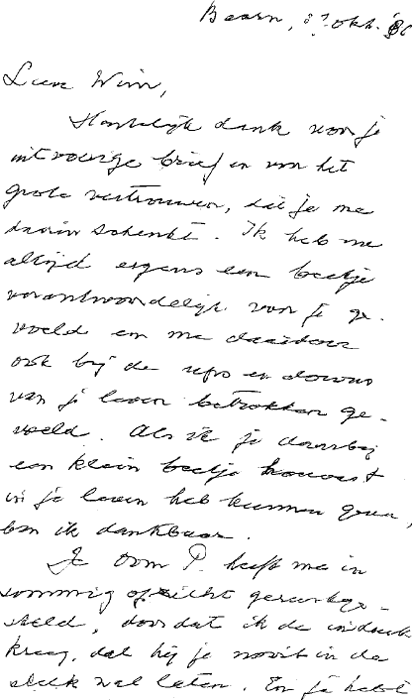 Baarn, 8? okt. '86
Lieve Wim,
Hartelijk dank voor je
uitvoerige brief en voor het
grote vertrouwen, dat je me
daarin schenkt. Ik heb me
altijd ergens een beetje
verantwoordelijk voor je ge-
voeld en me daardoor
ook bij de ups en downs
van je leven betrokken ge-
voeld. Als ik je daarbij
een klein beetje houvast
in je leven heb kunnen geven,
ben ik dankbaar.
Je oom P. heeft me in
sommig opzicht gerustge-
steld, doordat ik de indruk
kreeg, dat hij je nooit in de
steek zal laten. En je hebt